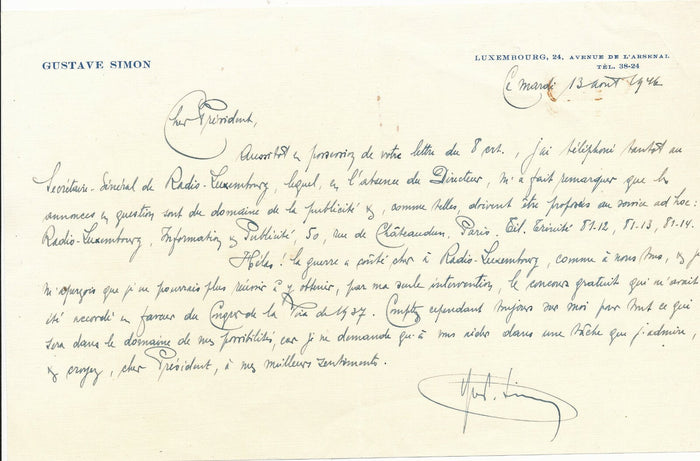 GUSTAVE SIMON
LUXEMBOURG, 24, AVENUE DE L'ARSENAL
TÉL. 38-24
Ce mardi 13 août 1946
Cher Président,
Aussitôt en possession de votre lettre du 8 crt., j'ai téléphoné tantôt au
Secrétaire-Général de Radio-Luxembourg, lequel, en l'absence du Directeur, m'a fait remarquer que les
annonces en question sont du domaine de la publicité &, comme telles, doivent être proposées au service ad hoc:
Radio-Luxembourg, Information & Publicité, 50, rue de Châteaudun, Paris. Tél. Trinité 81-12, 81-13, 81-14.
Hélas! la guerre a coûté cher à Radio-Luxembourg, comme à nous tous, & je
m'aperçois que je ne pourrais plus réussir à y obtenir, par ma seule intervention, le concours gratuit qui m'avait
été accordé en faveur du Congrès de la de 1937. Comptez cependant toujours sur moi pour tout ce qui
sera dans le domaine de mes possibilités, car je ne demande qu'à vous aider dans une tâche que j'admire,
& croyez, cher Président, à mes meilleurs sentiments.
Gust. Simon